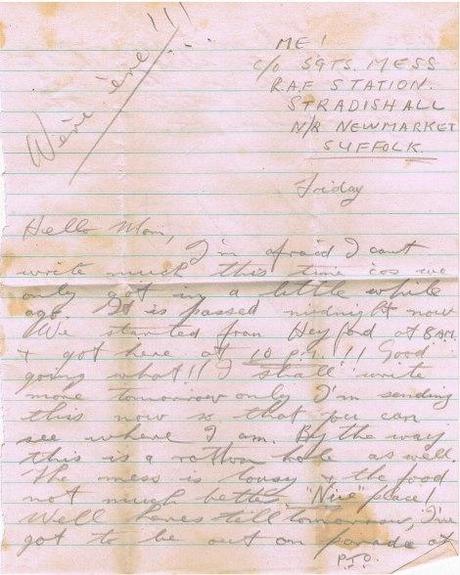 We're ere!!!
ME!
c/o SGTS. MESS
R.A.F STATION.
STRADISHALL
N/R NEWMARKET
SUFFOLK.
Friday
Hello Mom,
I'm afraid I cant
write much this time 'cos we
only got in a little while
ago. It is passed midnight now
We started from Heyford at 8 AM.
& got here at 10 P.M.!!! Good
going what!! I shall write
more tomorrow only I'm sending
this now so that you can
see where I am. By the way
this is a rotten hole as well.
The mess is lousy & the food
not much better "Nice" place!
Well heres till tomorrow, I've
got to be out on parade at
P.T.O.